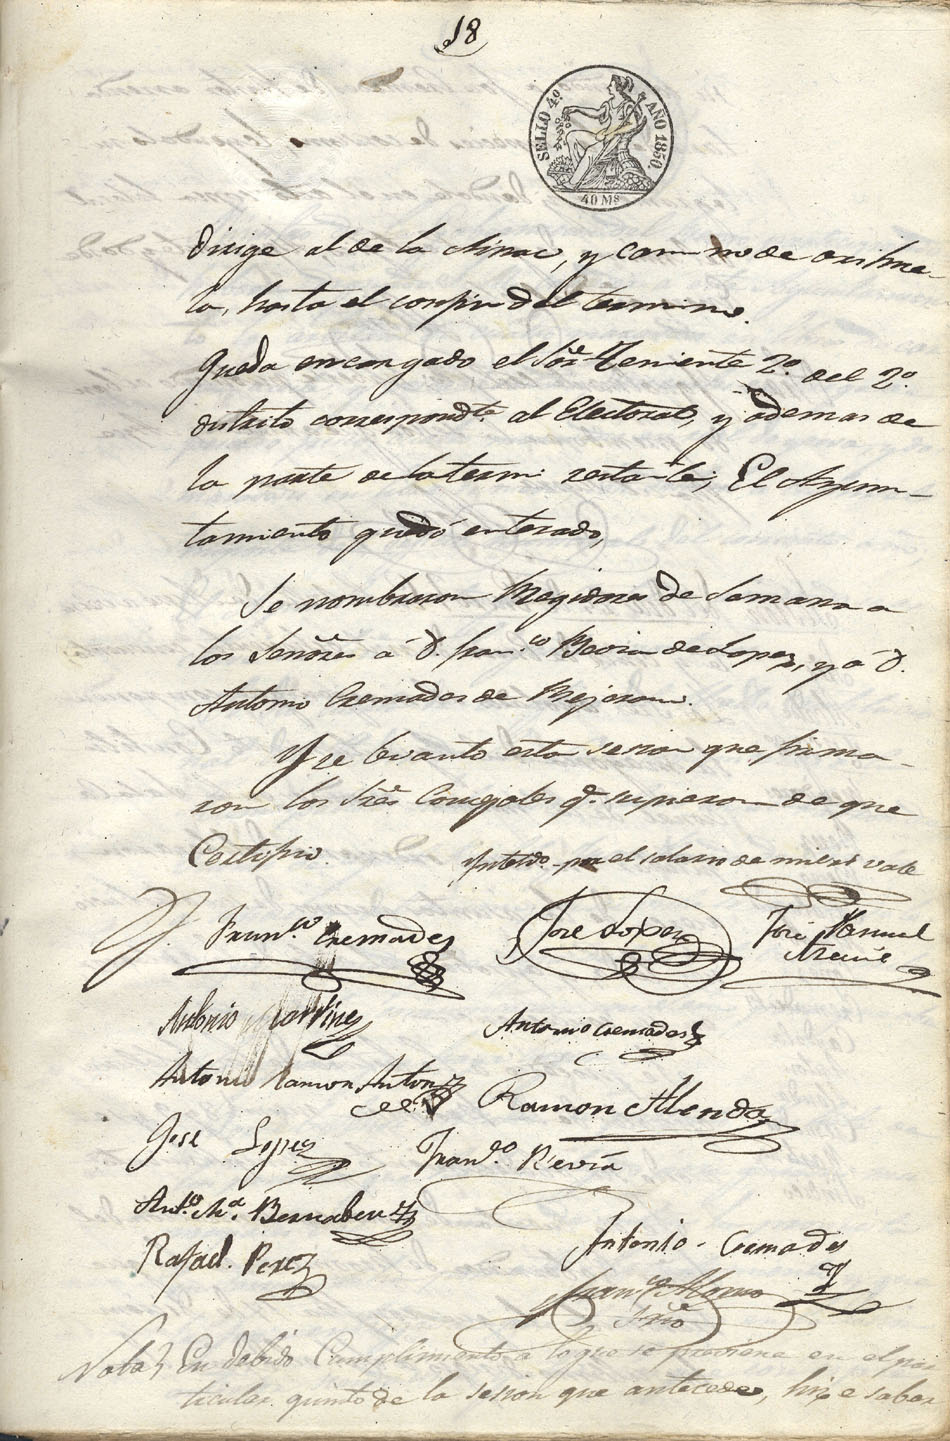 18
SELLO 4º AÑO 1850.
40 Ms
dirige al de la , y camino de orihue-
la, hasta el confin del termino.
Queda encargado el Sor. Teniente 2º. del 2º.
distrito correspondte. al Electoral, y ademas de
la parte de la restante; El Ayun-
tamiento quedó enterado,
Se nombraron Regidores de Semana a
los Señores á D. Franco. Bevia de Lopez, y á D.
Antonio Cremades de Bejaran.
Y se levantó esta sesion que firma-
ron los Sres. Concejales q. supieron de que
Certifico. el salario de vale
Franco. Cremades José Lopez José Manuel
Antonio Martinez Antonio Cremades
Antonio Ramon Anton Ramon Alenda
José Lopez Franco. Revia
Anto. Ma. Bernabeu
Rafael. Perez Antonio. Cremades
Franco. Alonso
Srio
Nota. En debido Cumplimiento a lo que se previene en el par
ticular quinto de la sesion que antecede, hice saber